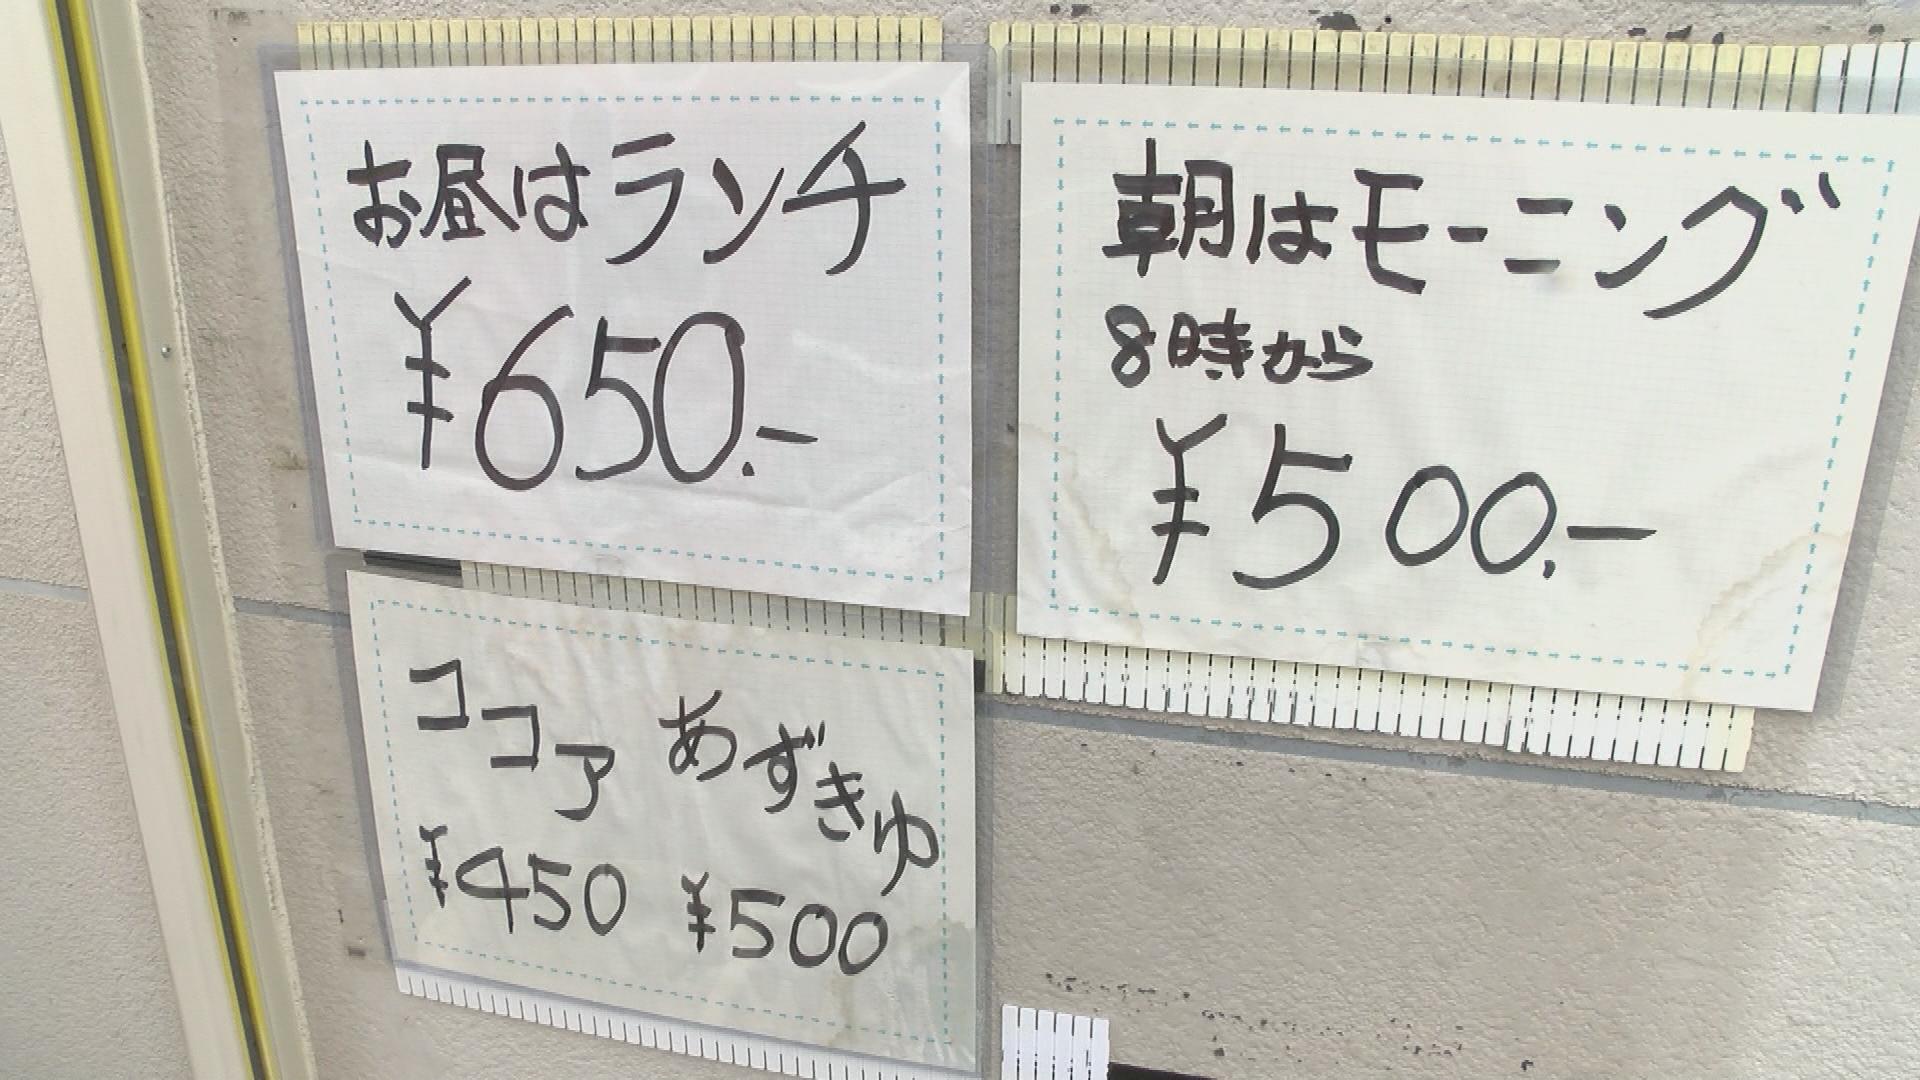 お昼はランチ
¥650.-
朝はモーニング
8時から
¥500.-
ココア あずきゆ
¥450 ¥500